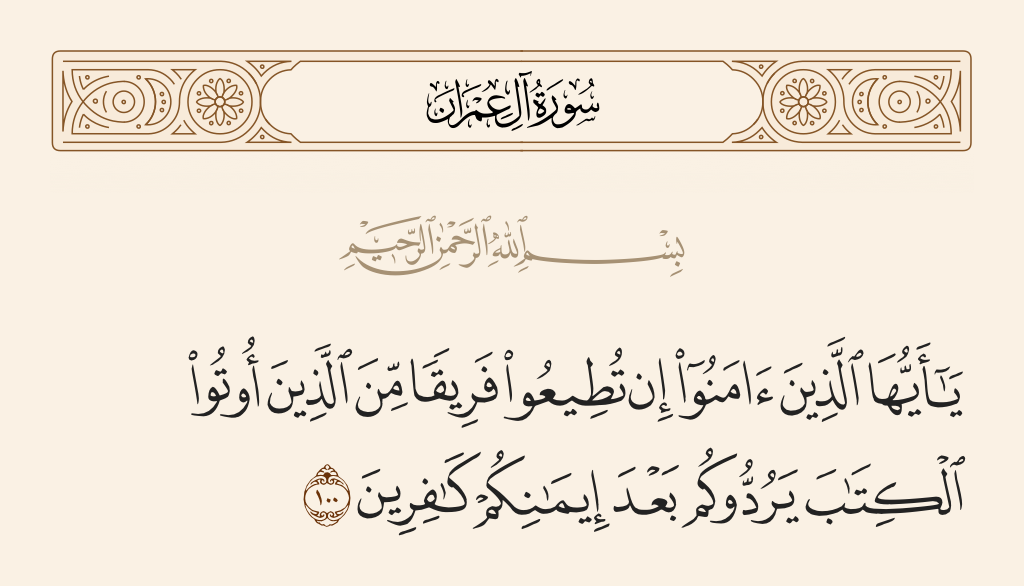 سُورَةُ آلِ عِمْرَان
بِسْمِ ٱللَّهِ ٱلرَّحْمَٰنِ ٱلرَّحِيمِ
يَـٰٓأَيُّهَا ٱلَّذِينَ ءَامَنُوٓا۟ إِن تُطِيعُوا۟ فَرِيقًا مِّنَ ٱلَّذِينَ أُوتُوا۟
ٱلْكِتَـٰبَ يَرُدُّوكُم بَعْدَ إِيمَـٰنِكُمْ كَـٰفِرِينَ ١٠٠